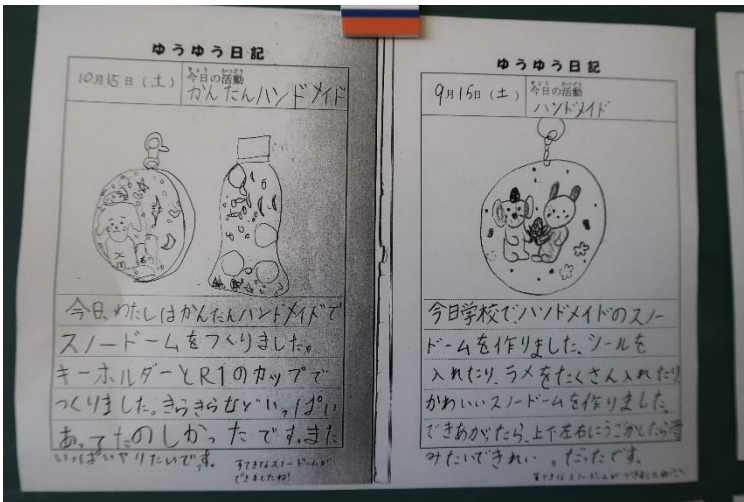 ゆうゆう日記
10月15日(土)
きょう かつどう
今日の活動
かんたんハンドメイド
今日、わたしはかんたんハンドメイドで
スノードームをつくりました。
キーホルダーとR1のカップで
つくりました。きらきらなどいっぱい
あってたのしかったです。また
いっぱいやりたいです。
すてきなスノードームが
できましたね!
ゆうゆう日記
9月15日(土)
きょう かつどう
今日の活動
ハンドメイド
今日学校で、ハンドメイドのスノー
ドームを作りました、シールを
入れたり、ラメをたくさん入れたり
かわいいスノードームを作りました
できあがったら、上下左右にうごかしたら雪
みたいできれい。だったです。
すてきなスノードームができましたね